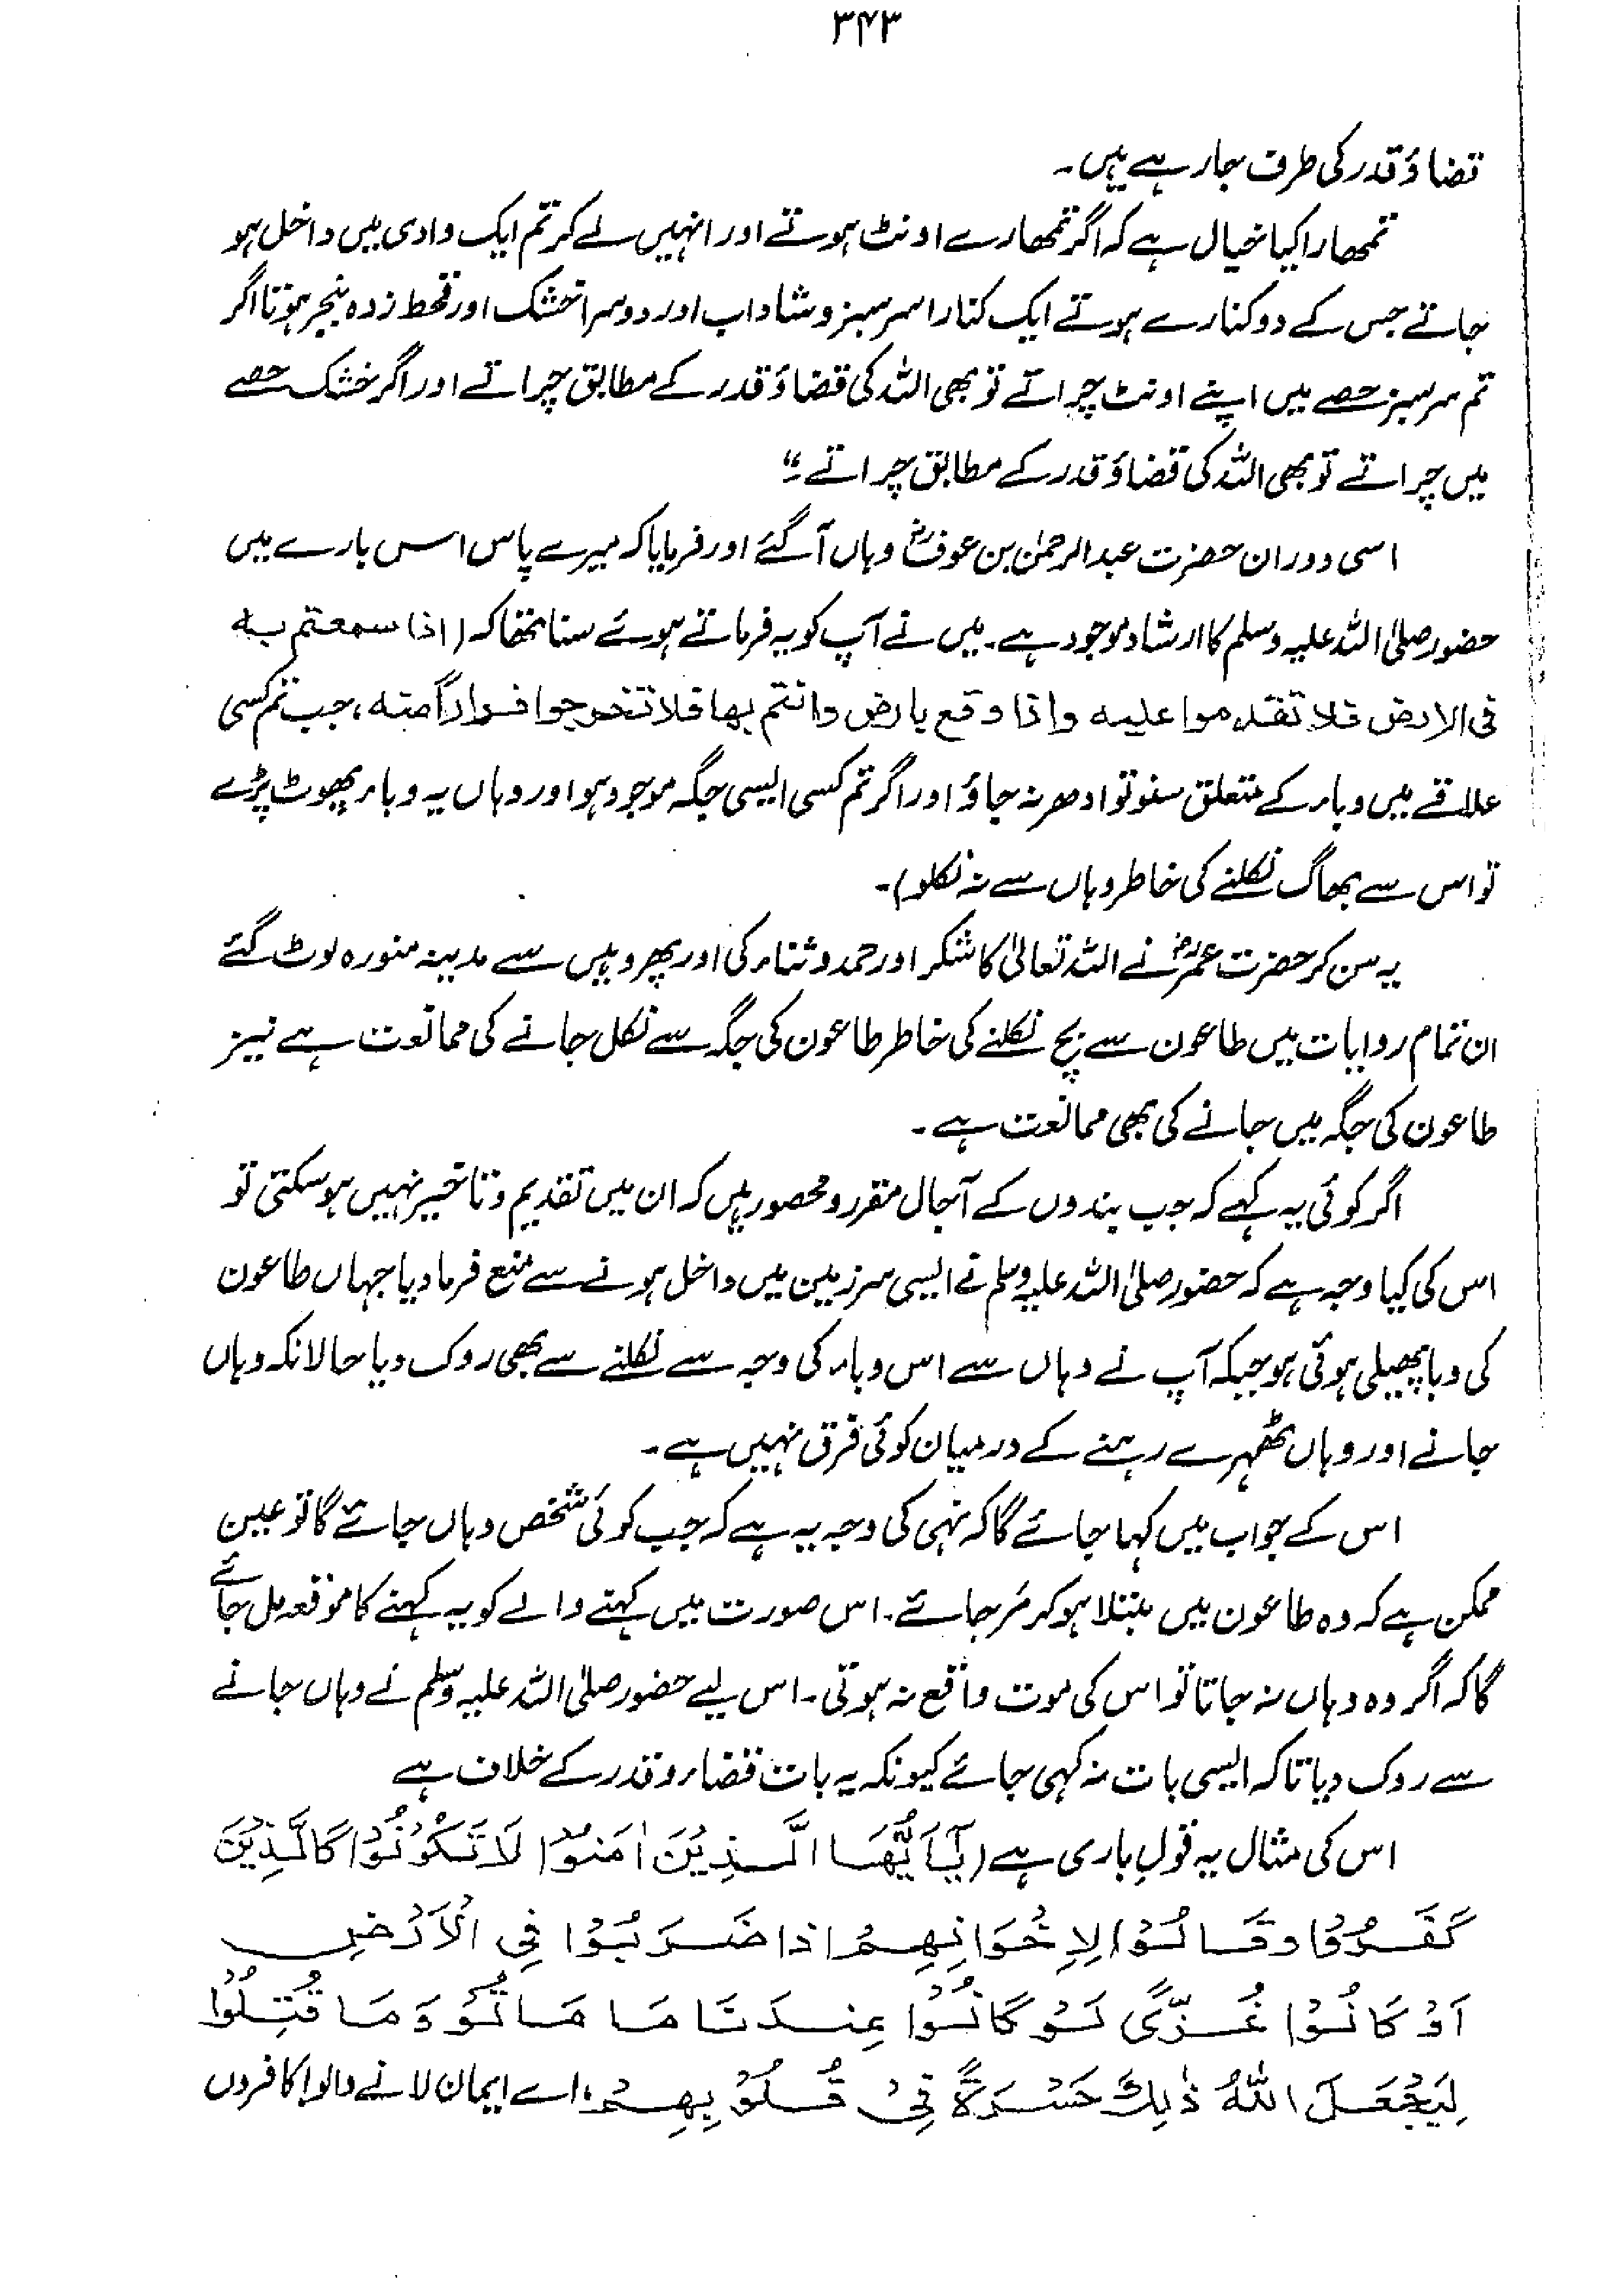 ۳۴۳
قضاؤ قدر کی طرف جا رہے ہیں۔
تمھارا کیا خیال ہے کہ اگر تمھارے اونٹ ہوتے اور انہیں لے کر تم ایک وادی میں داخل ہو
جاتے جس کے دو کنارے ہوتے ایک کنارا سرسبز و شاداب اور دوسرا خشک اور قحط زدہ بنجر ہوتا اگر
تم سرسبز حصے میں اپنے اونٹ چراتے تو بھی اللہ کی قضاؤ قدر کے مطابق چراتے اور اگر خشک حصے
میں چراتے تو بھی اللہ کی قضاؤ قدر کے مطابق چراتے۔"
اسی دوران حضرت عبدالرحمٰن بن عوفؓ وہاں آ گئے اور فرمایا کہ میرے پاس اس بارے میں
حضور صلی اللہ علیہ وسلم کا ارشاد موجود ہے۔ میں نے آپ کو یہ فرماتے ہوئے سنا تھا کہ (اذا سمعتم به
فی الارض فلا تقدموا علیه واذا وقع بارض وانتم بها فلا تخرجوا فراراً منه، جب تم کسی
علاقے میں وباء کے متعلق سنو تو ادھر نہ جاؤ اور اگر تم کسی ایسی جگہ موجود ہو اور وہاں یہ وباء پھوٹ پڑے
تو اس سے بھاگ نکلنے کی خاطر وہاں سے نہ نکلو)۔
یہ سن کر حضرت عمرؓ نے اللہ تعالیٰ کا شکر اور حمد و ثناء کی اور پھر وہیں سے مدینہ منورہ لوٹ گئے
ان تمام روایات میں طاعون سے بچ نکلنے کی خاطر طاعون کی جگہ سے نکل جانے کی ممانعت ہے نیز
طاعون کی جگہ میں جانے کی بھی ممانعت ہے۔
اگر کوئی یہ کہے کہ جب بندوں کے آجال مقرر و محصور ہیں کہ ان میں تقدیم و تاخیر نہیں ہو سکتی تو
اس کی کیا وجہ ہے کہ حضور صلی اللہ علیہ وسلم نے ایسی سرزمین میں داخل ہونے سے منع فرما دیا جہاں طاعون
کی وبا پھیلی ہوئی ہو جبکہ آپ نے وہاں سے اس وباء کی وجہ سے نکلنے سے بھی روک دیا حالانکہ وہاں
جانے اور وہاں ٹھہرے رہنے کے درمیان کوئی فرق نہیں ہے۔
اس کے جواب میں کہا جائے گا کہ نہی کی وجہ یہ ہے کہ جب کوئی شخص وہاں جائے گا تو عین
ممکن ہے کہ وہ طاعون میں مبتلا ہو کر مَر جائے۔ اس صورت میں کہنے والے کو یہ کہنے کا موقعہ مل جائے
گا کہ اگر وہ وہاں نہ جاتا تو اس کی موت واقع نہ ہوتی۔ اس لیے حضور صلی اللہ علیہ وسلم نے وہاں جانے
سے روک دیا تاکہ ایسی بات نہ کہی جائے کیونکہ یہ بات قضاء و قدر کے خلاف ہے
اس کی مثال یہ قولِ باری ہے (یٰٓاَیُّھَا الَّذِیْنَ اٰمَنُوْا لَا تَکُوْنُوْا کَالَّذِیْنَ
کَفَرُوْا وَقَالُوْا لِاِخْوَانِھِمْ اِذَا ضَرَبُوْا فِی الْاَرْضِ
اَوْ کَانُوْا غُزًّی لَوْ کَانُوْا عِنْدَنَا مَا مَاتُوْ وَمَا قُتِلُوْا
لِیَجْعَلَ اللّٰہُ ذٰلِکَ حَسْرَۃً فِیْ قُلُوْبِھِمْ، اے ایمان لانے والو! کافروں